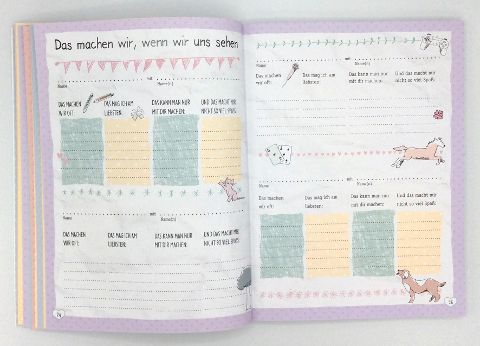 Das machen wir, wenn wir uns sehen
mit
Name Name(n)
DAS MACHEN DAS MAG ICH AM DAS KANN MAN NUR UND DAS MACHT MIR
WIR OFT: LIEBSTEN: MIT DIR MACHEN: NICHT SO VIEL SPAß:
mit
Name Name(n)
DAS MACHEN DAS MAG ICH AM DAS KANN MAN NUR UND DAS MACHT MIR
WIR OFT: LIEBSTEN: MIT DIR MACHEN: NICHT SO VIEL SPAß:
mit
Name Name(n)
Das machen Das mag ich am Das kann man nur Und das macht mir
wir oft: liebsten: mit dir machen: nicht so viel Spaß:
mit
Name Name(n)
Das machen Das mag ich am Das kann man nur Und das macht mir
wir oft: liebsten: mit dir machen: nicht so viel Spaß: